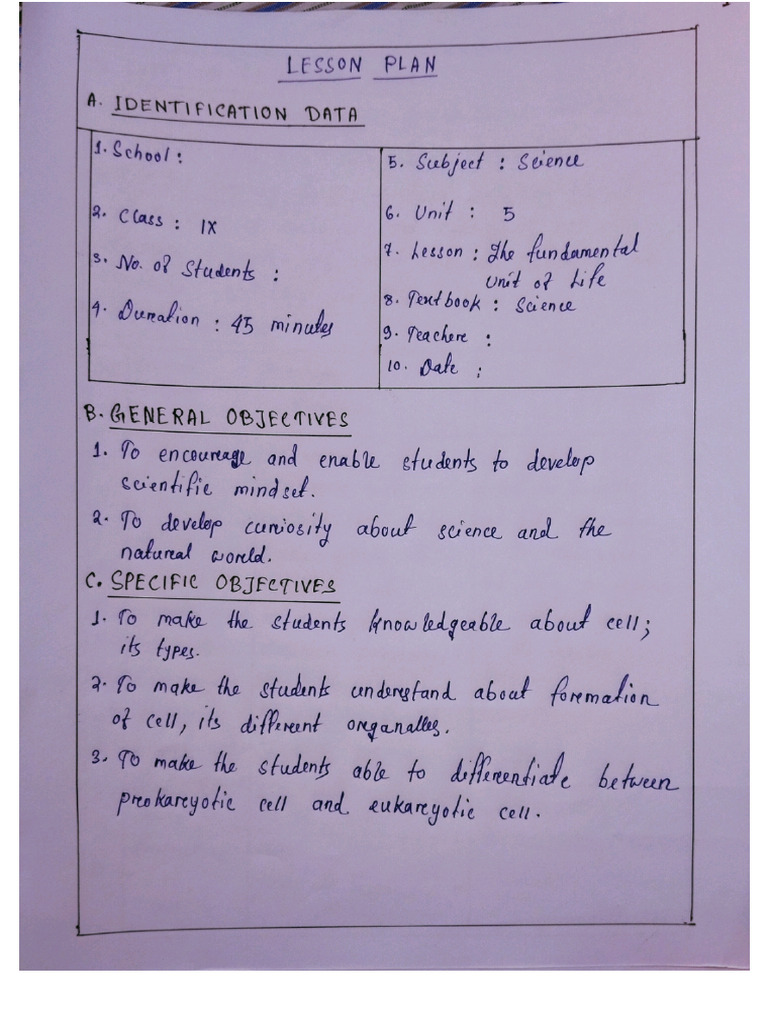 LESSON PLAN
A. IDENTIFICATION DATA
1. School :
2. Class : IX
3. No. of Students :
4. Duration : 45 minutes
5. Subject : Science
6. Unit : 5
7. Lesson : The fundamental
Unit of Life
8. Textbook : Science
9. Teacher :
10. Date :
B. GENERAL OBJECTIVES
1. To encourage and enable students to develop
scientific mindset.
2. To develop curiosity about science and the
natural world.
C. SPECIFIC OBJECTIVES
1. To make the students knowledgeable about cell;
its types.
2. To make the students understand about formation
of cell, its different organalles.
3. To make the students able to differentiate between
prokaryotic cell and eukaryotic cell.